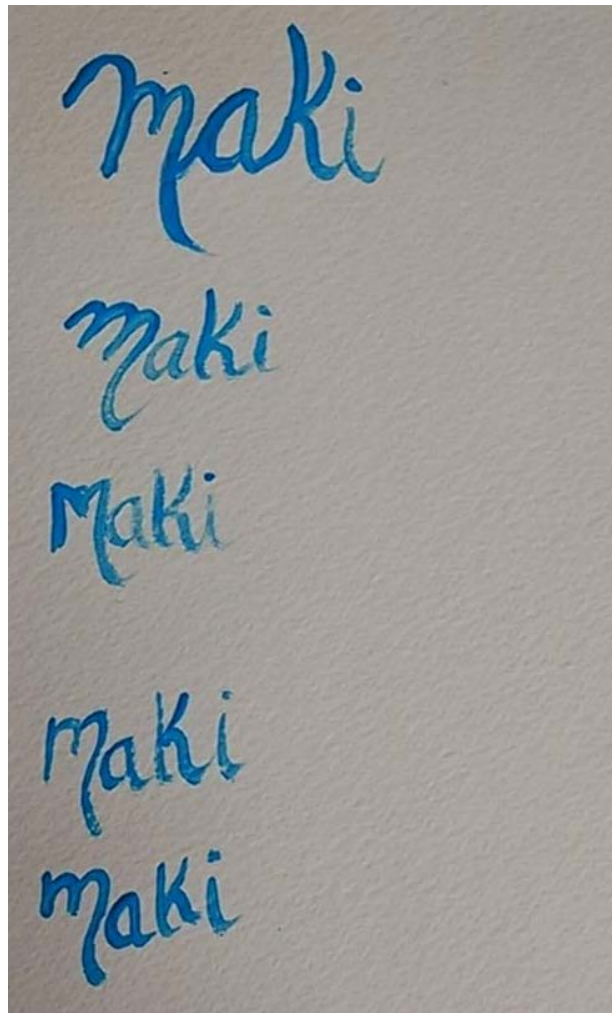 maki
maki
maki
maki
maki